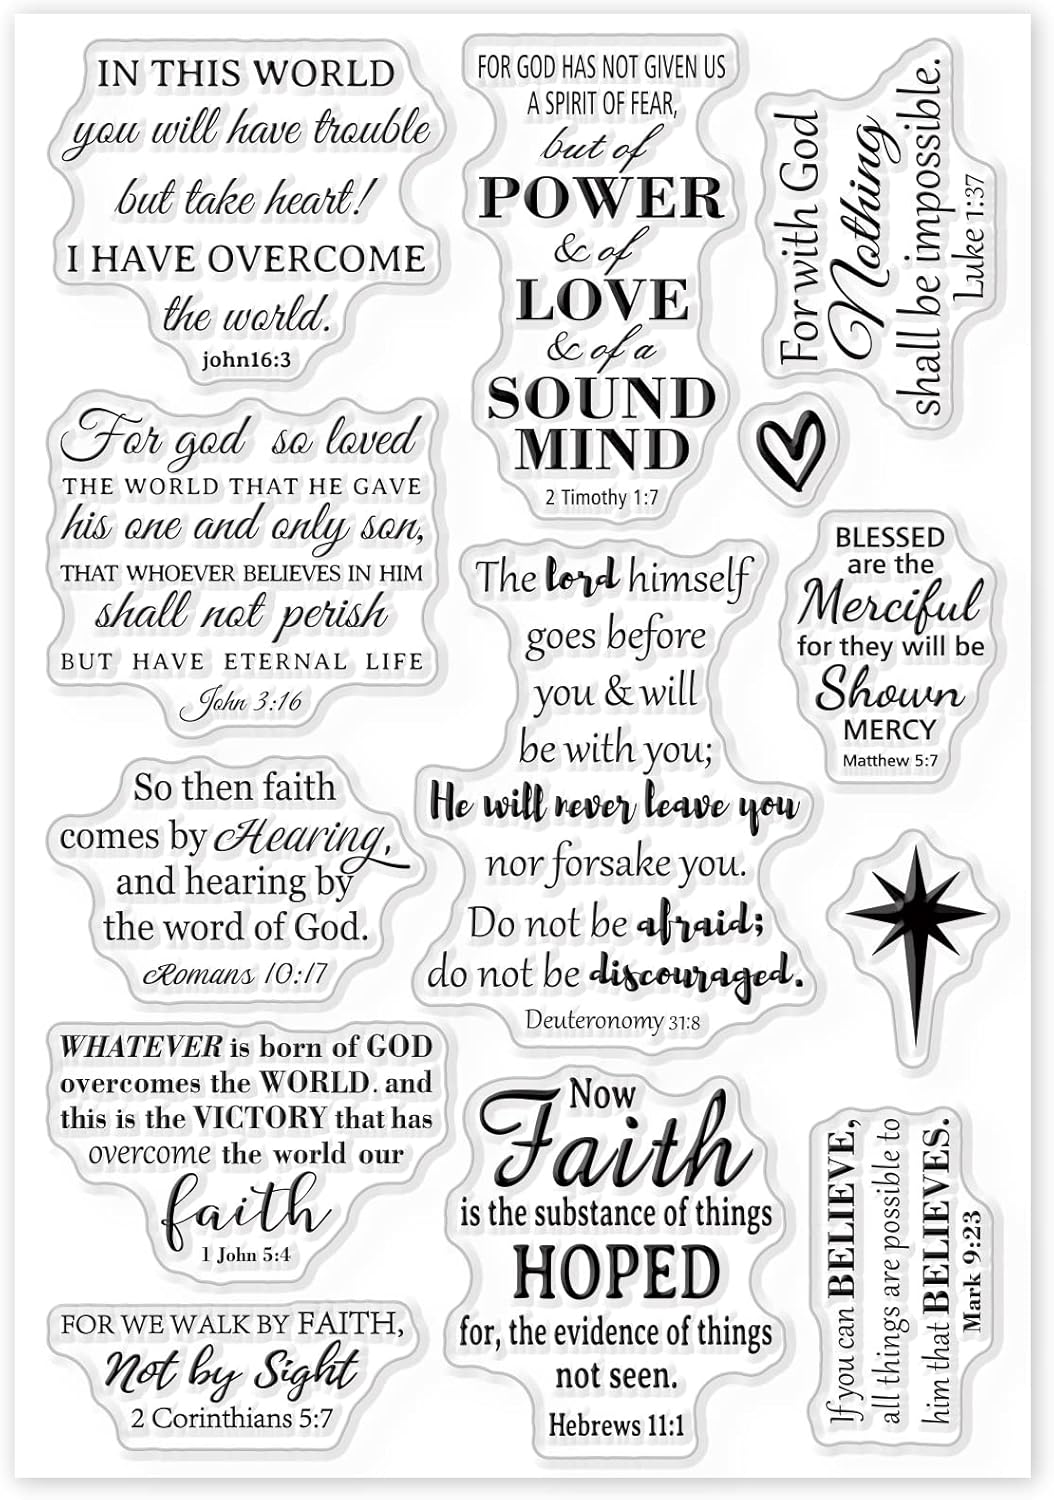 IN THIS WORLD
you will have trouble
but take heart!
I HAVE OVERCOME
the world.
john16:3
FOR GOD HAS NOT GIVEN US
A SPIRIT OF FEAR,
but of
POWER
& of
LOVE
& of a
SOUND
MIND
2 Timothy 1:7
For with God
Nothing
shall be impossible.
Luke 1:37
For god so loved
THE WORLD THAT HE GAVE
his one and only son,
THAT WHOEVER BELIEVES IN HIM
shall not perish
BUT HAVE ETERNAL LIFE
John 3:16
The lord himself
goes before
you & will
be with you;
He will never leave you
nor forsake you.
Do not be afraid;
do not be discouraged.
Deuteronomy 31:8
BLESSED
are the
Merciful
for they will be
Shown
MERCY
Matthew 5:7
So then faith
comes by Hearing,
and hearing by
the word of God.
Romans 10:17
WHATEVER is born of GOD
overcomes the WORLD. and
this is the VICTORY that has
overcome the world our
faith
1 John 5:4
Now
Faith
is the substance of things
HOPED
for, the evidence of things
not seen.
Hebrews 11:1
If you can BELIEVE,
all things are possible to
him that BELIEVES.
Mark 9:23
FOR WE WALK BY FAITH,
Not by Sight
2 Corinthians 5:7